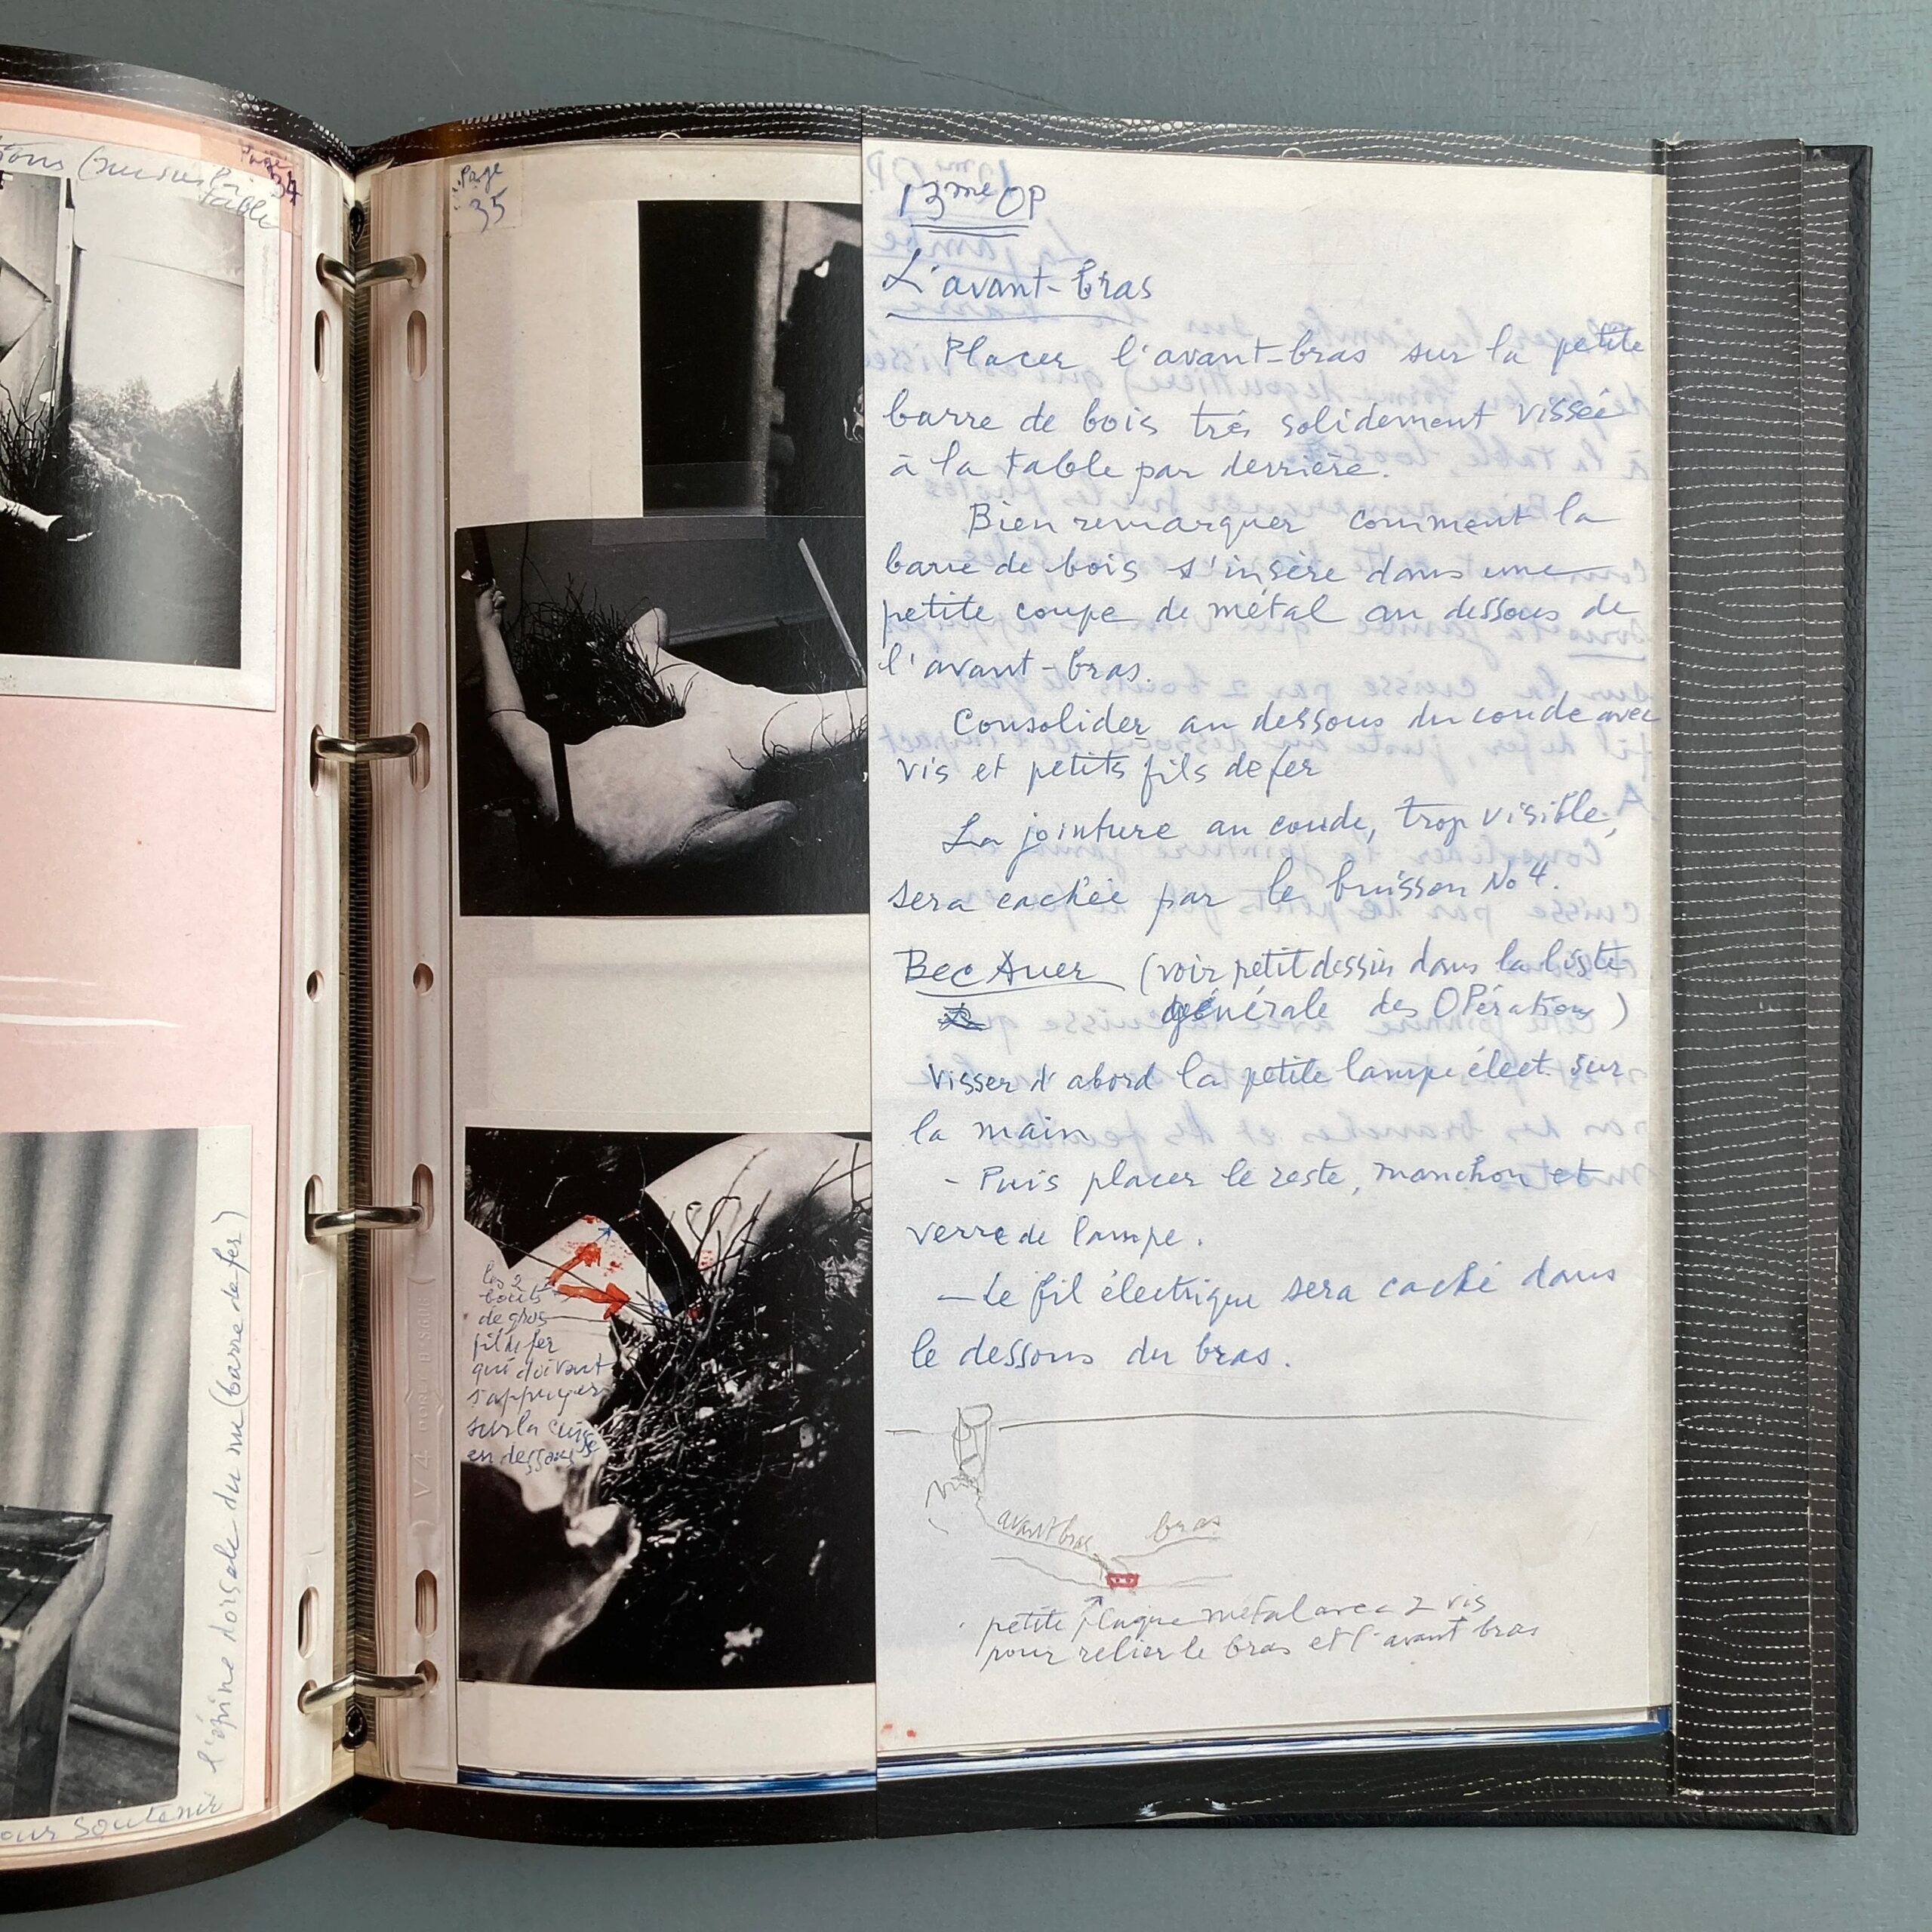 Page
34
table
l'épine dorsale du nu (barre de fer)
our soutenir
Page
35
les 2
bouts
de gros
fil de fer
qui doivent
s'appuyer
sur la cuisse
en dessous
13me OP
L'avant-bras
Placer l'avant-bras sur la petite
barre de bois trés solidement vissée
à la table par derrière.
Bien remarquer comment la
barre de bois s'insère dans une
petite coupe de métal au dessous de
l'avant-bras.
Consolider au dessous du coude avec
vis et petits fils de fer
La jointure au coude, trop visible,
sera cachée par le buisson No 4.
Bec Auer (voir petit dessin dans la liste
générale des OPérations)
Visser d'abord la petite lampe élect. sur
la main
- Puis placer le reste, manchon et
verre de lampe.
- Le fil électrique sera caché dans
le dessous du bras.
avant bras
bras
petite plaque métal avec 2 vis
pour relier le bras et l'avant bras